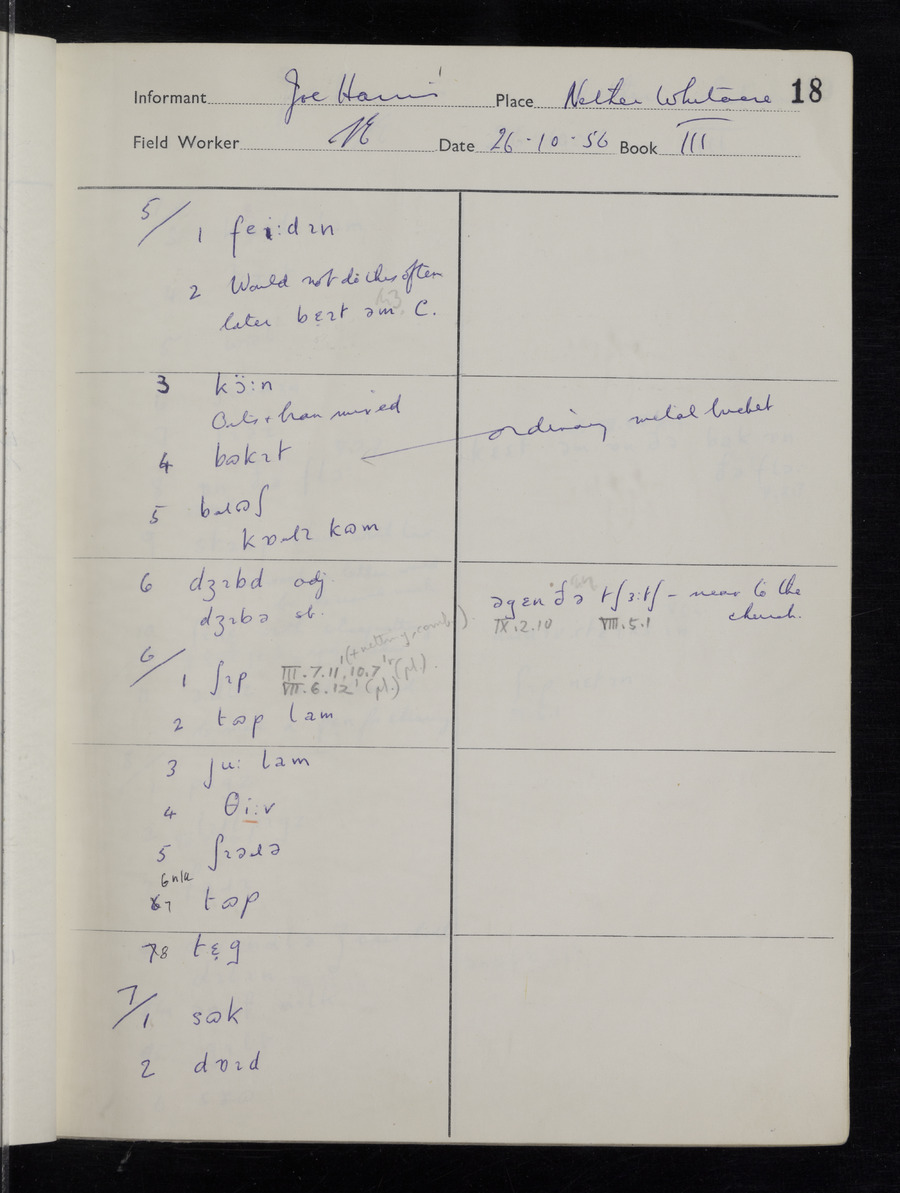 Informant Joe Harris Place Nether Whitacre 18
Field Worker Date 26-10-56 Book III
5/
1 fɛi:dɪn
2 Would not do this often
later bɛɪt əm C.
3 kɔ̈:n
Oats + bran mixed
4 bɷkɪt ordinary metal bucket
5 bɹɷʃ
kɒɹɪ kɷm
6 dʒɪbd adj.
dʒɪbə sb.
əgɛn ðə tʃɜ:tʃ - near to the
church.
IX.2.10 VIII.5.1
6/
1 ʃɪp III.7.11, 10.7 (pl.)
VII.6.12 (pl.)
2 tɷp lam
3 ju: lam
4 θi:v
5 ʃɪəɹə
6 n/a
7 tɷp
8 tɛg
7/
1 sɷk
2 dɒɪd